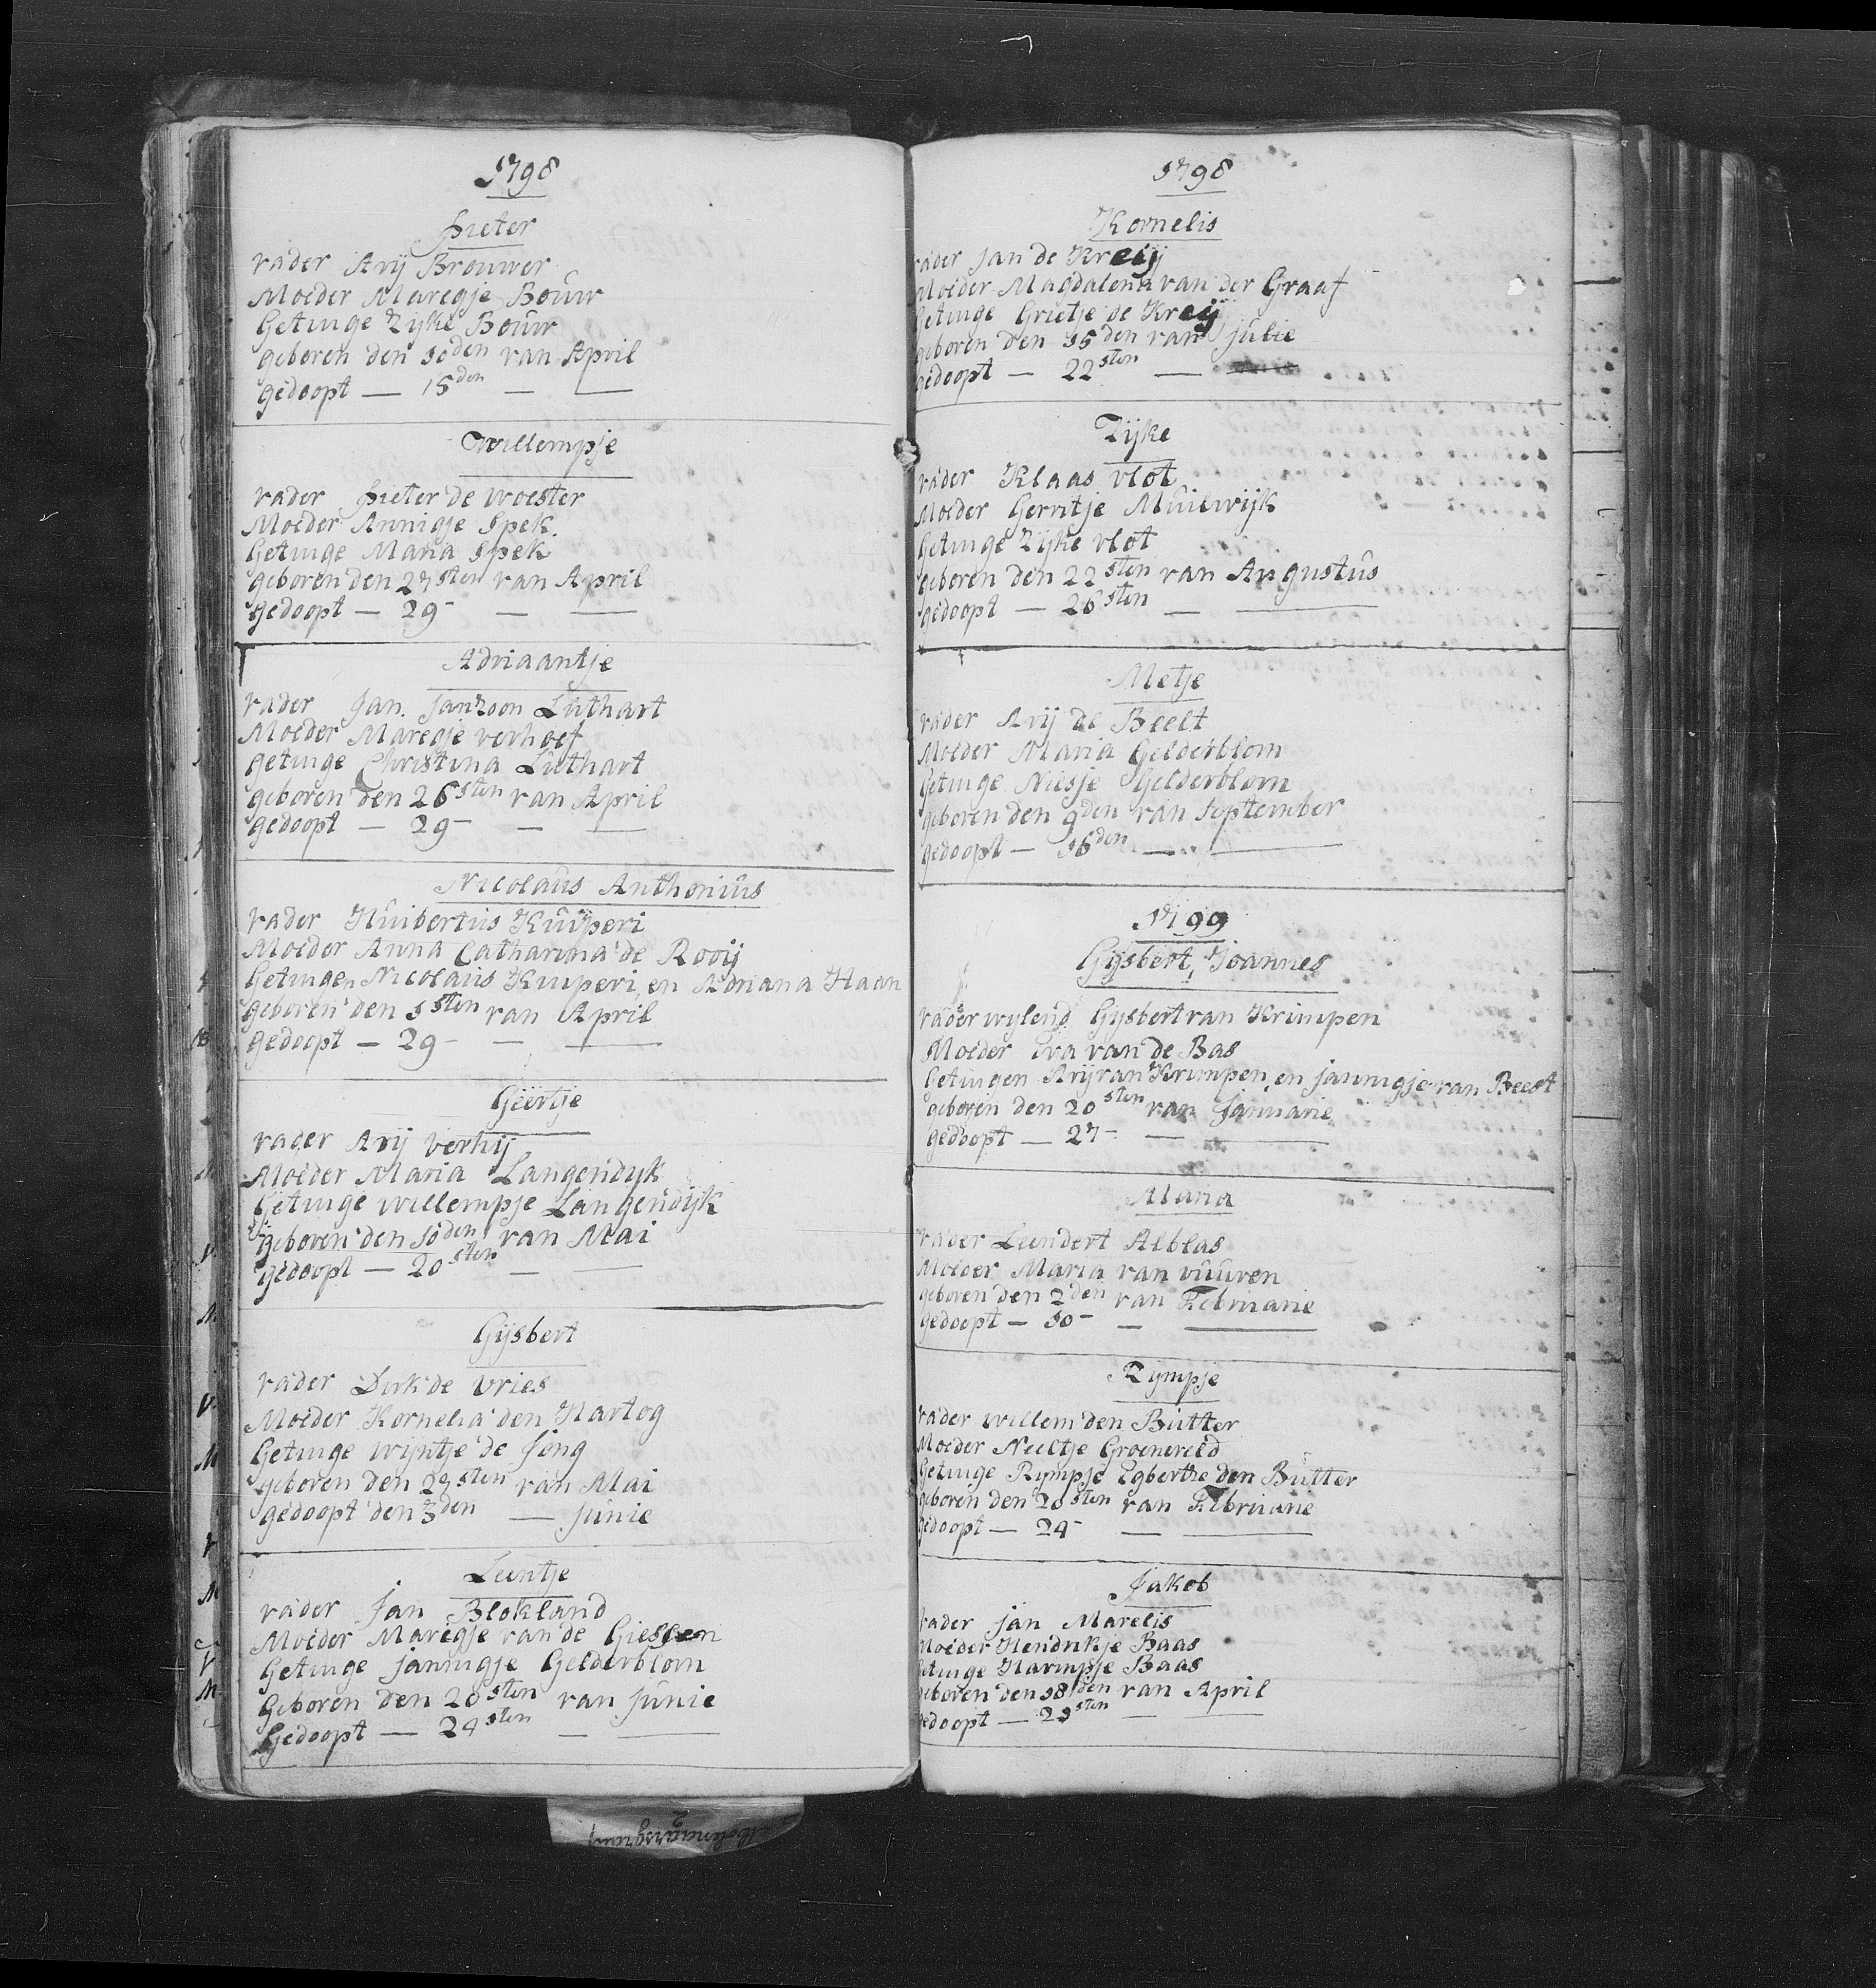 1798
Pieter
vader Arij Brouwer
Moeder Maregje Bouw
Getuige Zijke Bouw
geboren den 10den van April
gedoopt — 15den — —
Willempje
vader Pieter de Woester
Moeder Annigje Spek
Getuige Maria Spek
geboren den 27sten van April
gedoopt — 29 — —
Adriaantje
vader Jan Janzoon Luthart
Moeder Maregje verhoef
getuige Christina Luthart
geboren den 26sten van April
gedoopt — 29 — —
Nicolaus Anthonius
vader Huibertus Kuijperi
Moeder Anna Catharina de Rooij
Getuigen Nicolaus Kuiperi, en Adriana Haan
geboren den 1sten van April
gedoopt — 29 — —
Geertje
vader Arij verhij
Moeder Maria Langendijk
Getuige willempje Langendijk
geboren den 10den van Mai
gedoopt — 20sten — —
Gijsbert
vader Dirk de Vries
Moeder Kornelia den Hartog
Getuige wijntje de Jong
geboren den 27sten van Mai
gedoopt den 3den — Junie
Leentje
vader Jan Blokland
Moeder Maregje van de Giessen
Getuige jannigje Gelderblom
Geboren den 20sten van Junie
Gedoopt — 24sten — —
1798
Kornelis
vader Jan de Kreij
Moeder Magdalena van der Graaf
Getuige Grietje de Kreij
geboren den 15den van Julie
gedoopt — 22sten — —
Zijke
vader Klaas vlot
Moeder Gerritje Muilwijk
Getuige Zijke vlot
geboren den 22sten van Augustus
gedoopt — 26sten — —
Metje
vader Arij de Beelt
Moeder Maria Gelderblom
Getuige Niesje Gelderblom
geboren den 9den van September
gedoopt — 16den — —
1799
Gijsbert, Joannes
vader wylend Gijsbert van Krimpen
Moeder Eva van de Bas
Getuigen Arij van Krimpen, en jannigje van Beest
geboren den 20sten van Januarie
gedoopt — 27 — —
Maria
vader Leendert Alblas
Moeder Maria van vuuren
geboren den 2den van Februarie
gedoopt — 10 — —
Rijmpje
vader willem den Butter
Moeder Neeltje Groeneveld
Getuige Rympje Egbertze den Butter
geboren den 20sten van Februarie
gedoopt — 24 — —
Jakob
vader jan Marelis
Moeder Hendrikje Baas
Getuige Harmpje Baas
geboren den 18den van April
gedoopt — 21sten — —